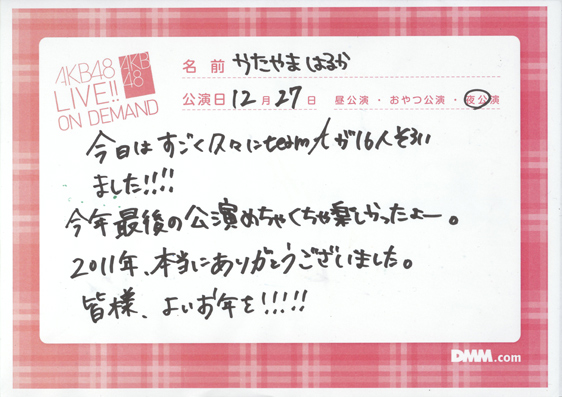 AKB48
LIVE!!
ON DEMAND
AKB
48
名前 かたやまはるか
公演日 12月27日 昼公演・おやつ公演・夜公演
今日はすごく久々にteamAが16人そろい
ました!!!!
今年最後の公演めちゃくちゃ楽しかったよー。
2011年、本当にありがとうございました。
皆様、よいお年を!!!!!
DMM.com